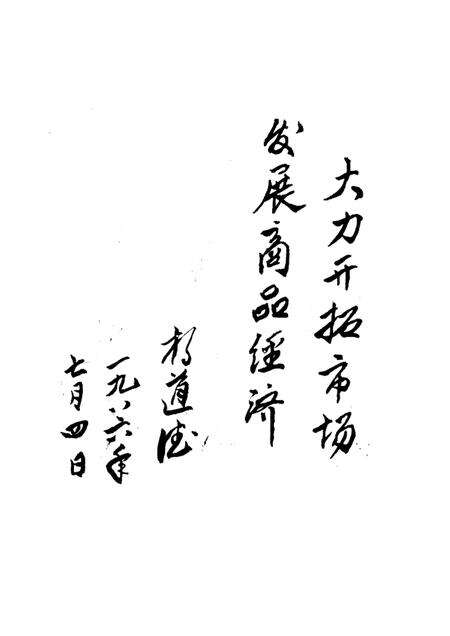 大力开拓市场
发展商品经济
道德
一九八六年
七月四日